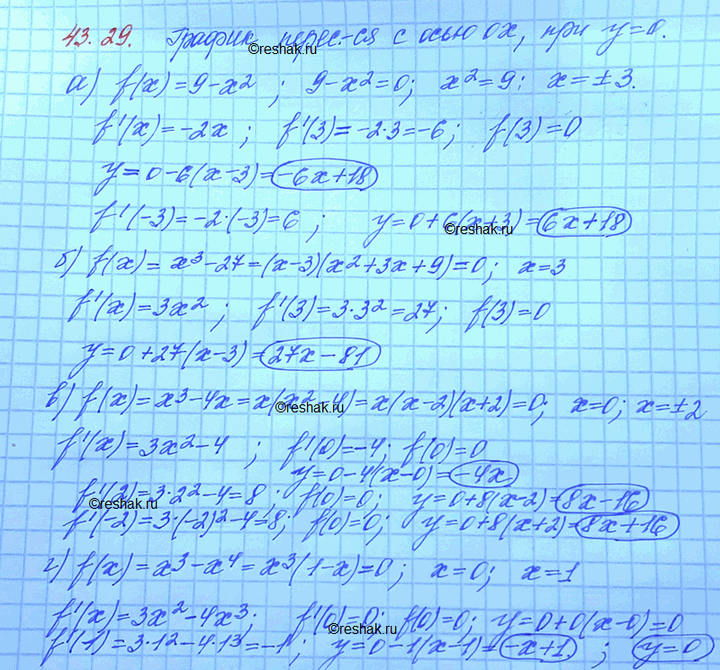 43.29. График перес-ся с осью ox, при y=0.
©reshak.ru
а) f(x)=9-x²; 9-x²=0; x²=9; x=±3.
f'(x)=-2x; f'(3)=-2·3=-6; f(3)=0
y=0-6(x-3)=-6x+18
f'(-3)=-2·(-3)=6; y=0+6(x+3)=6x+18
©reshak.ru
б) f(x)=x³-27=(x-3)(x²+3x+9)=0; x=3
f'(x)=3x²; f'(3)=3·3²=27; f(3)=0
y=0+27(x-3)=27x-81
в) f(x)=x³-4x=x(x²-4)=x(x-2)(x+2)=0; x=0; x=±2
©reshak.ru
f'(x)=3x²-4; f'(0)=-4; f(0)=0
y=0-4(x-0)=-4x
f'(2)=3·2²-4=8; f(0)=0; y=0+8(x-2)=8x-16
©reshak.ru
f'(-2)=3·(-2)²-4=8; f(0)=0; y=0+8(x+2)=8x+16
г) f(x)=x³-x⁴=x³(1-x)=0; x=0; x=1
f'(x)=3x²-4x³; f'(0)=0; f(0)=0; y=0+0(x-0)=0
©reshak.ru
f'(1)=3·1²-4·1³=-1; y=0-1(x-1)=-x+1; y=0